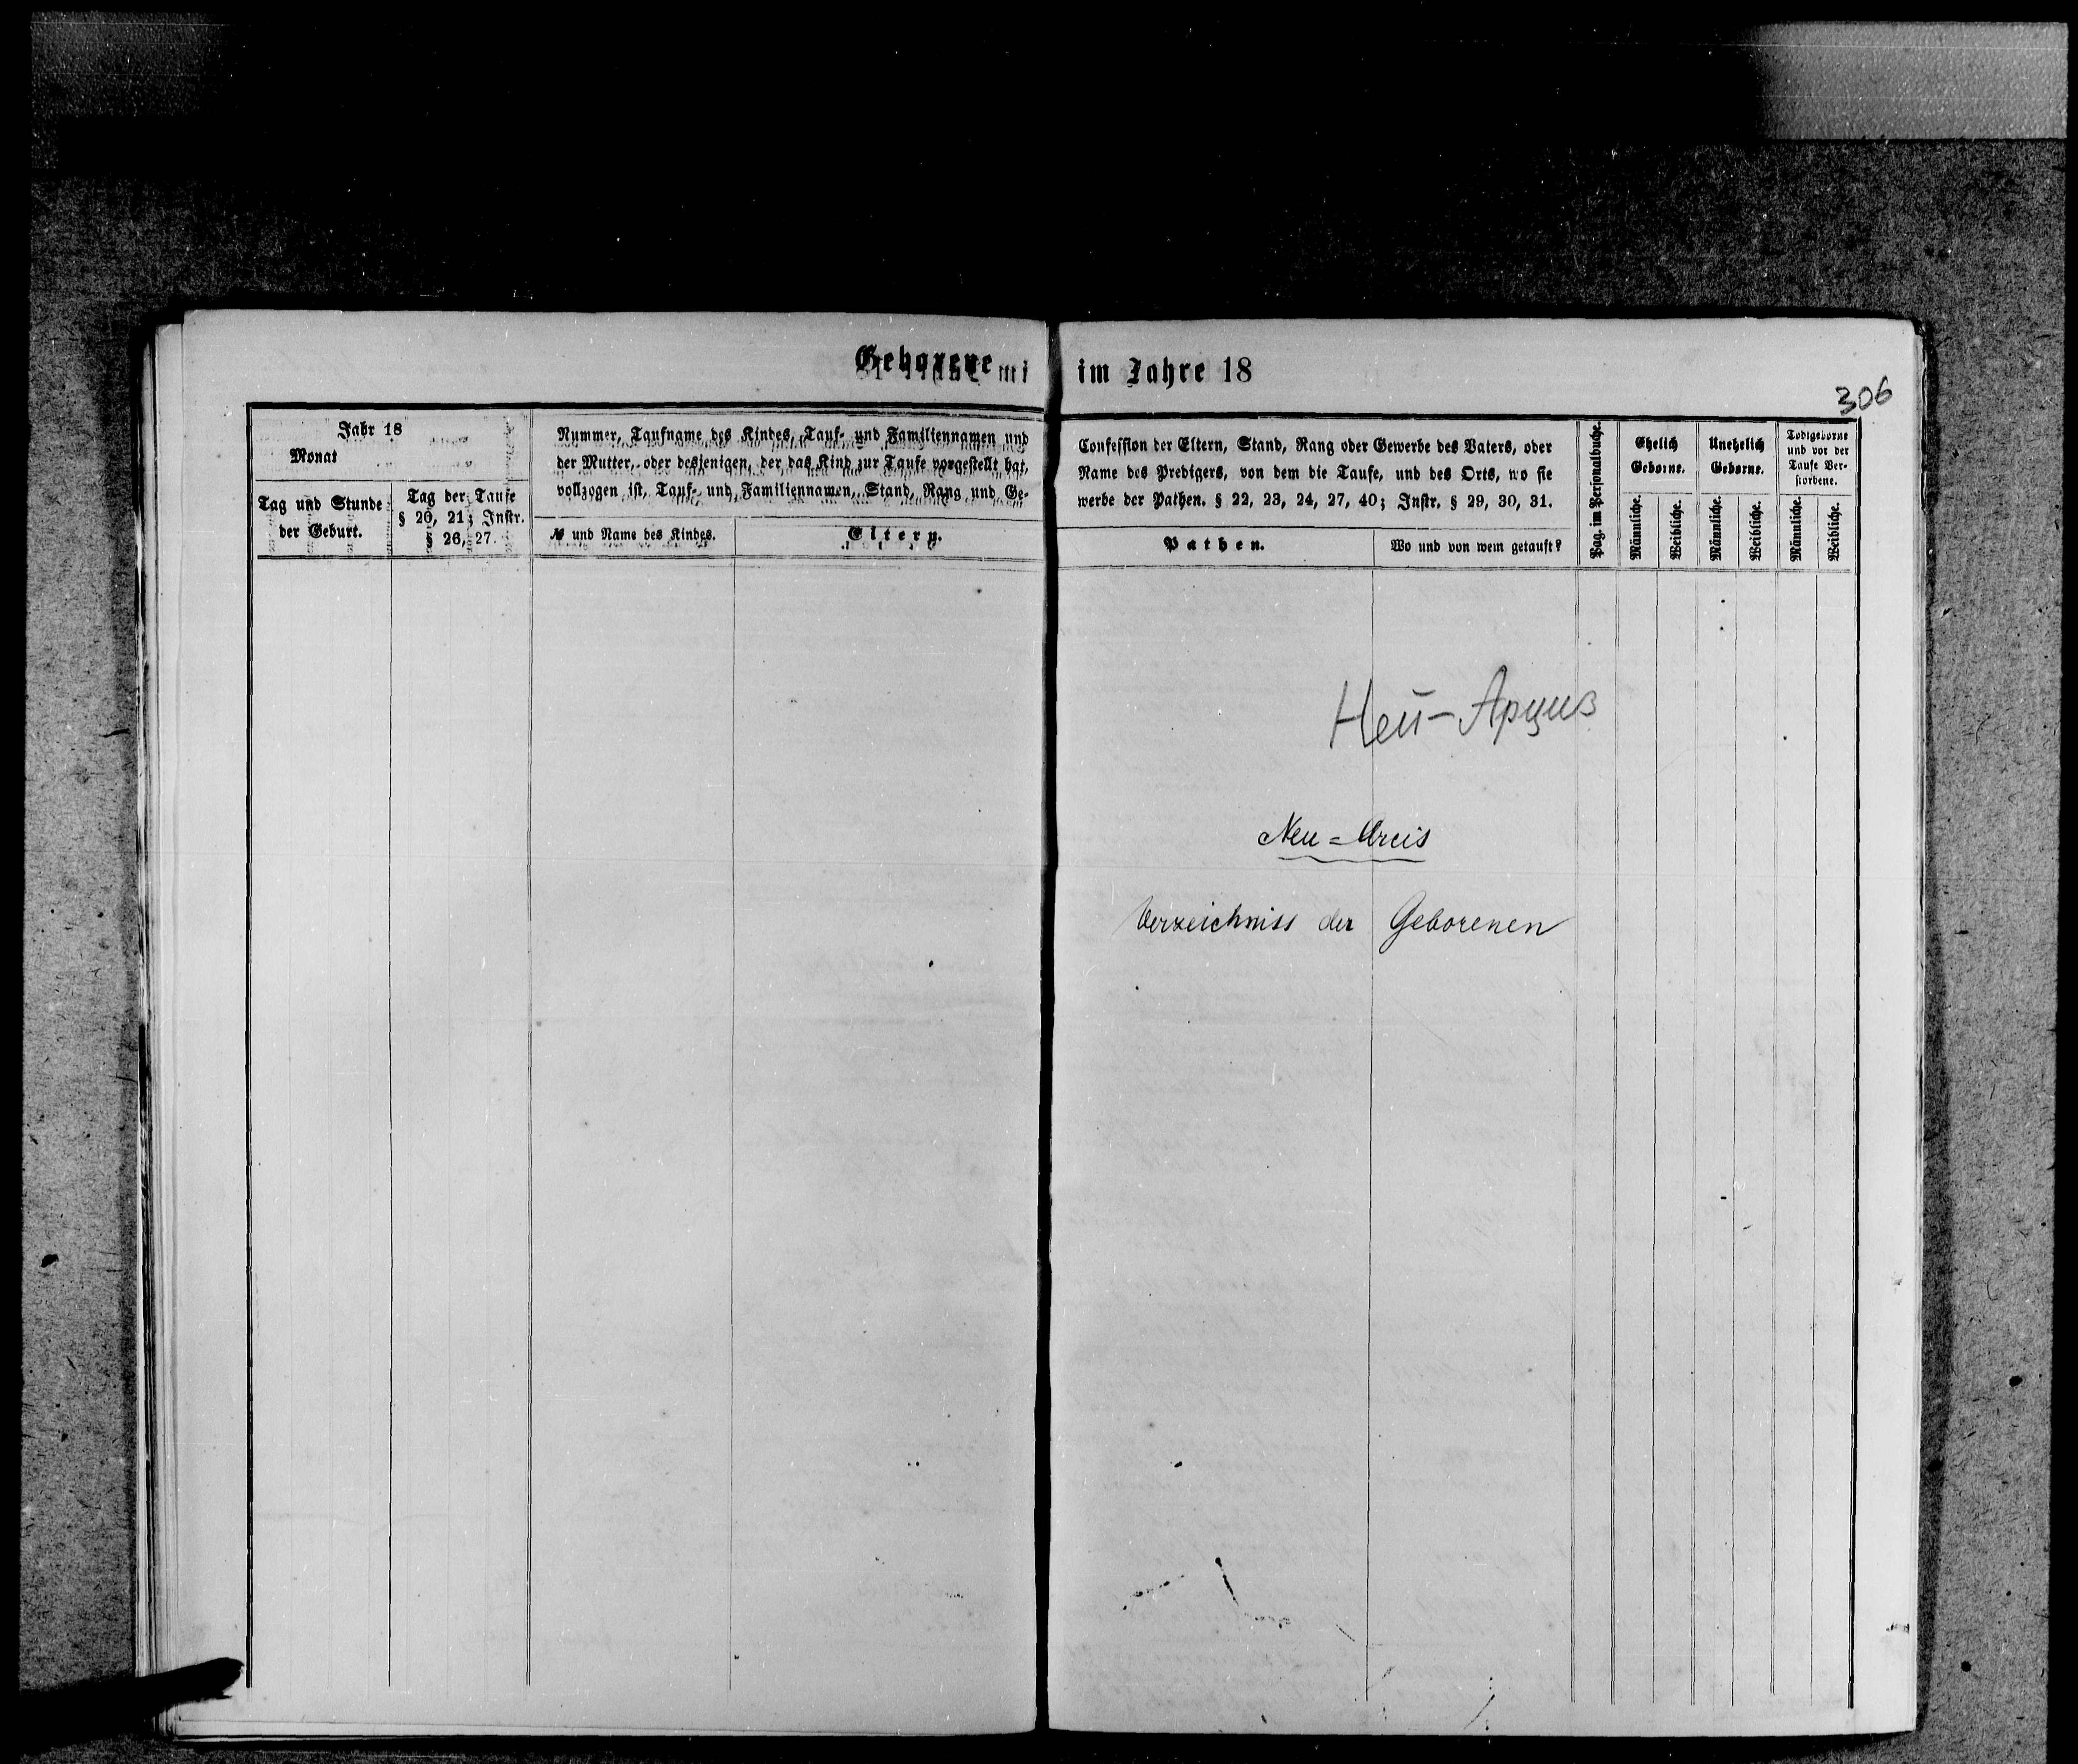 Geborene im Jahre 18
306
Jahr 18
Monat
Tag und Stunde
der Geburt.
Tag der Taufe
§ 20, 21; Instr.
§ 26, 27.
Nummer, Taufname des Kindes, Tauf- und Familiennamen und
der Mutter, oder desjenigen, der das Kind zur Taufe vorgestellt hat,
vollzogen ist, Tauf- und Familiennamen, Stand, Rang und Ge-
№ und Name des Kindes.
Eltern.
Confession der Eltern, Stand, Rang oder Gewerbe des Vaters, oder
Name des Predigers, von dem die Taufe, und des Orts, wo sie
werbe der Pathen. § 22, 23, 24, 27, 40; Instr. § 29, 30, 31.
Pathen.
Wo und von wem getauft?
Pag. im Personalbuche.
Ehelich
Geborne.
Männliche.
Weibliche.
Unehelich
Geborne.
Männliche.
Weibliche.
Todtgeborne
und vor der
Taufe Ver-
storbene.
Männliche.
Weibliche.
Ней-Арциз
Neu=Arcis
Verzeichniss der Geborenen